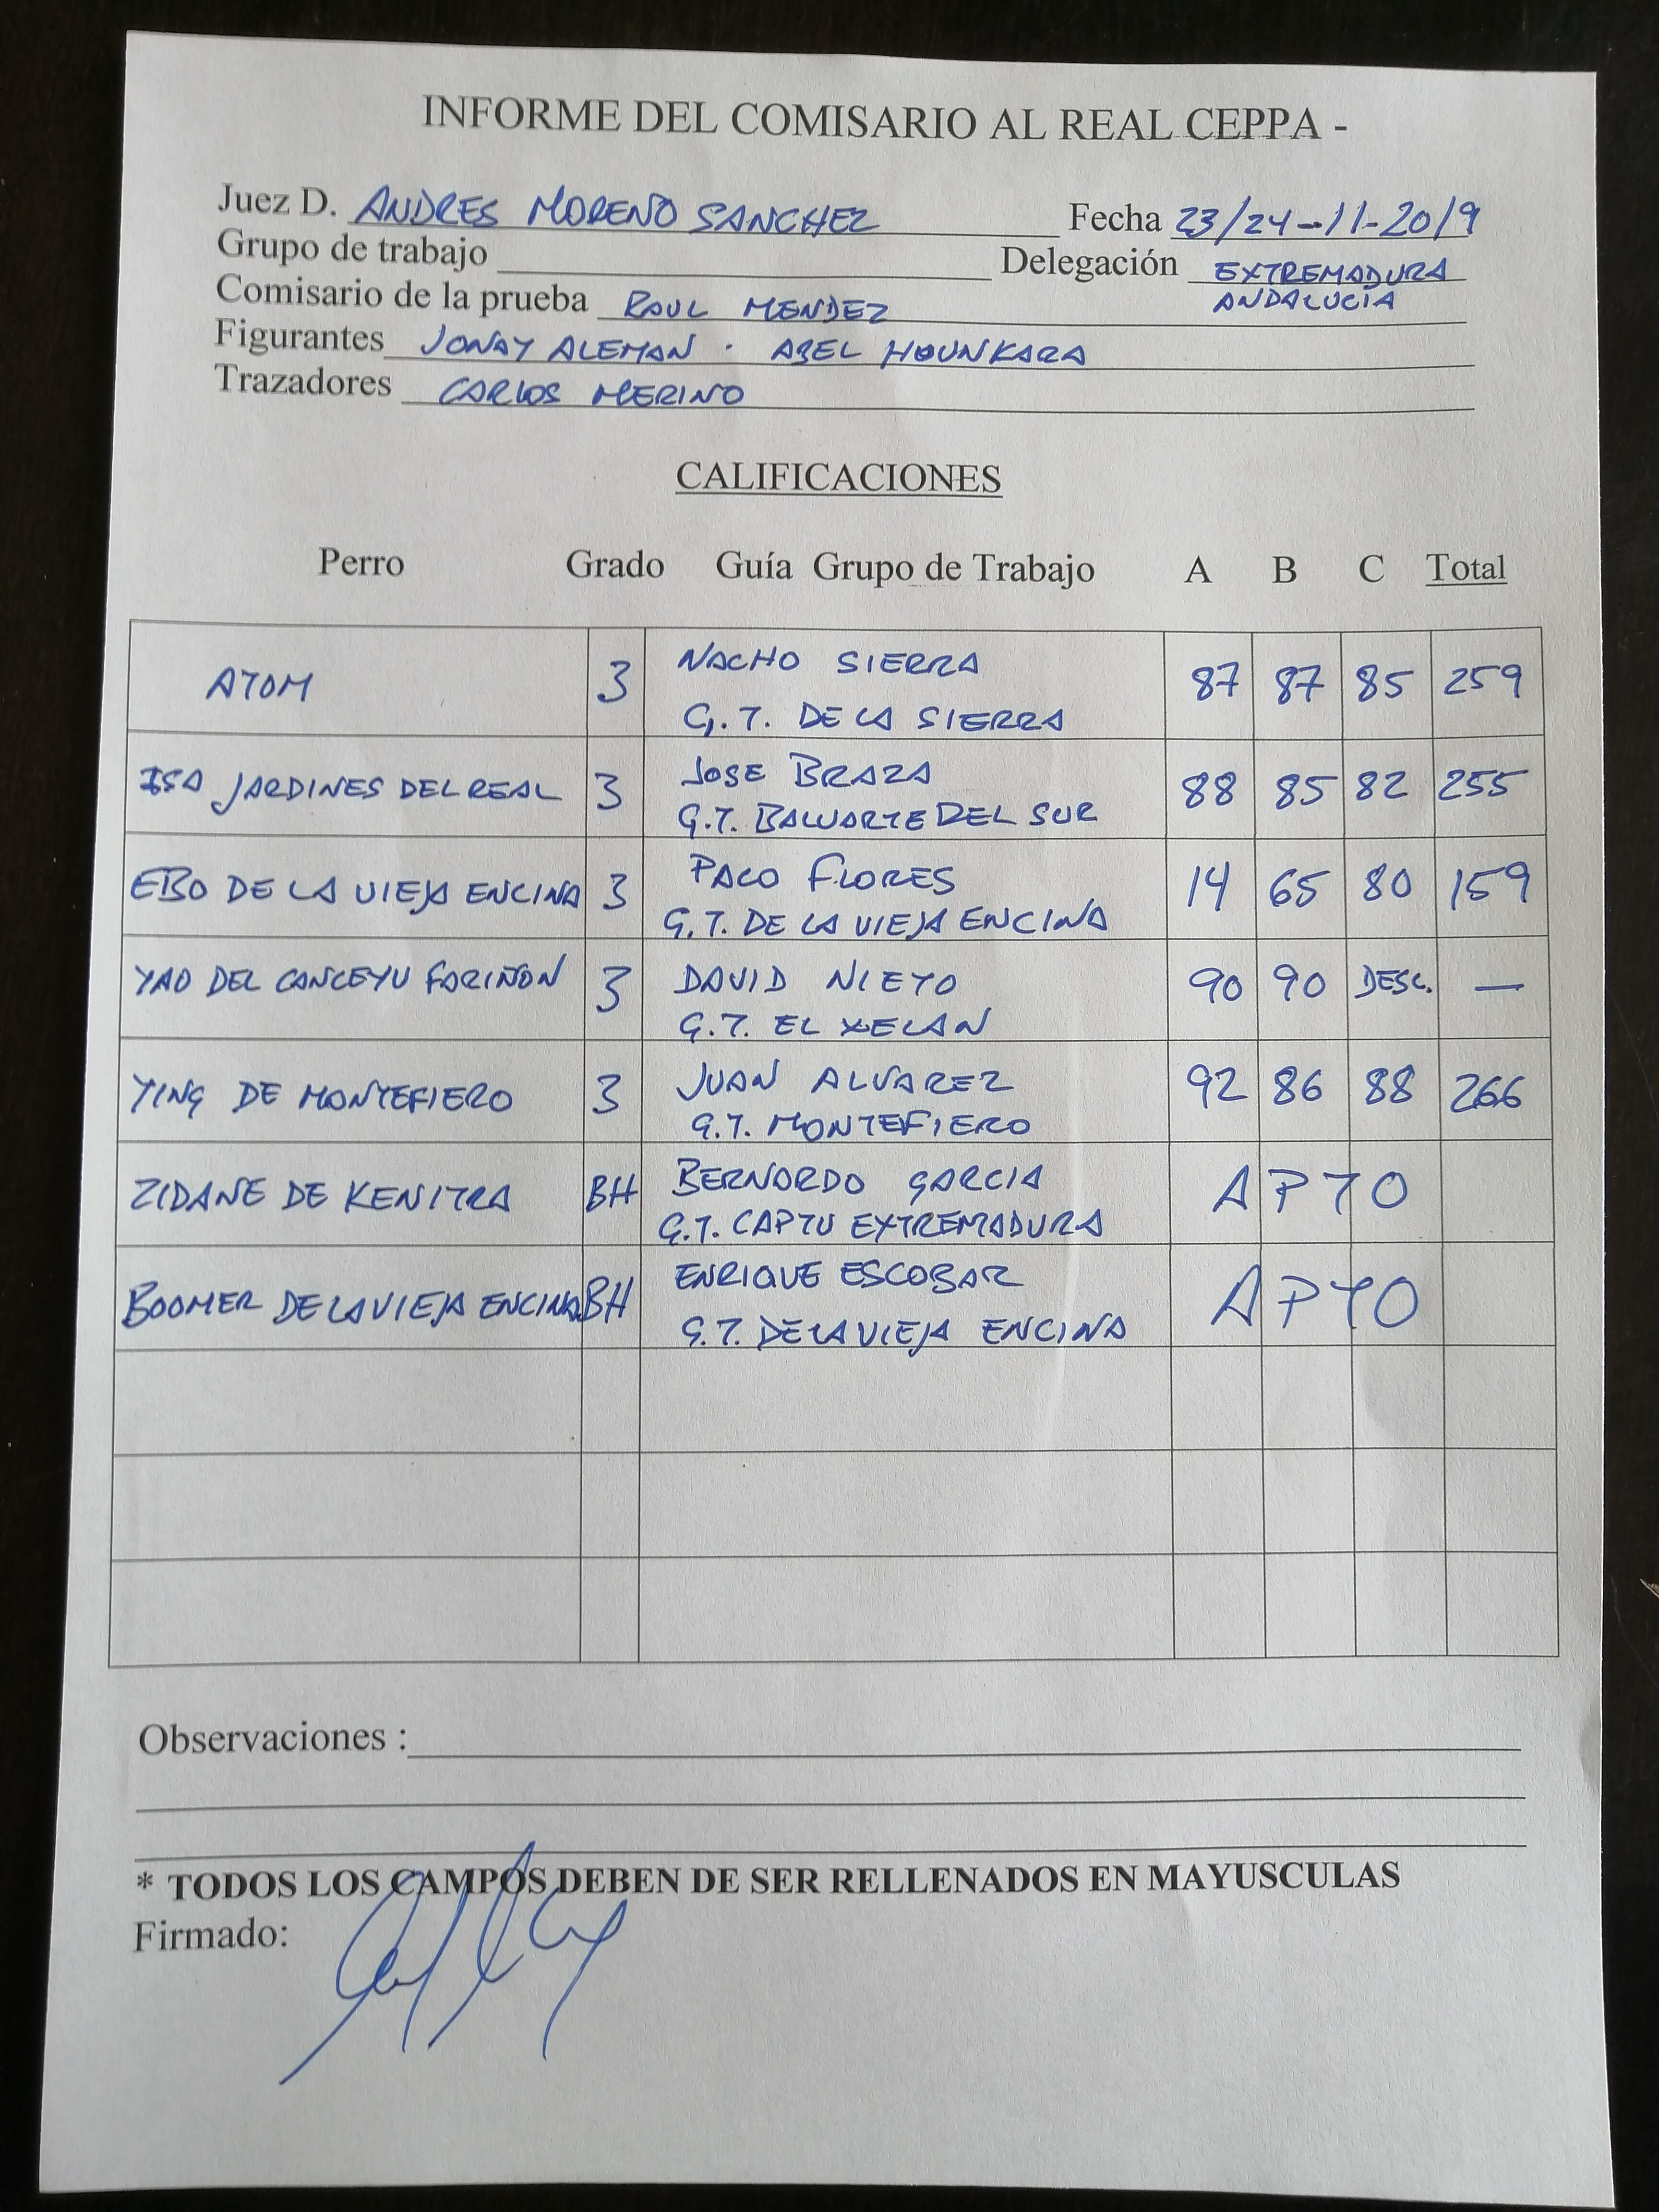 INFORME DEL COMISARIO AL REAL CEPPA -
Juez D. ANDRES MORENO SANCHEZ Fecha 23/24-11-2019
Grupo de trabajo Delegación EXTREMADURA
ANDALUCÍA
Comisario de la prueba RAUL MENDEZ
Figurantes JONAY ALEMAN · ABEL HOUNKARA
Trazadores CARLOS MERINO
CALIFICACIONES
Perro Grado Guía Grupo de Trabajo A B C Total
ATOM 3 NACHO SIERRA 87 87 85 259
G.T. DE LA SIERRA
ISA JARDINES DEL REAL 3 JOSE BRAZA 88 85 82 255
G.T. BALUARTE DEL SUR
EBO DE LA VIEJA ENCINA 3 PACO FLORES 14 65 80 159
G.T. DE LA VIEJA ENCINA
YAO DEL CANCEYU FARIÑON 3 DAVID NIETO 90 90 DESC. —
G.T. EL XELAN
YING DE MONTEFIERO 3 JUAN ALVAREZ 92 86 88 266
G.T. MONTEFIERO
ZIDANE DE KENITRA BH BERNARDO GARCIA APTO
G.T. CAPTU EXTREMADURA
BOOMER DE LA VIEJA ENCINA BH ENRIQUE ESCOBAR APTO
G.T. DE LA VIEJA ENCINA
Observaciones :
* TODOS LOS CAMPOS DEBEN DE SER RELLENADOS EN MAYUSCULAS
Firmado: